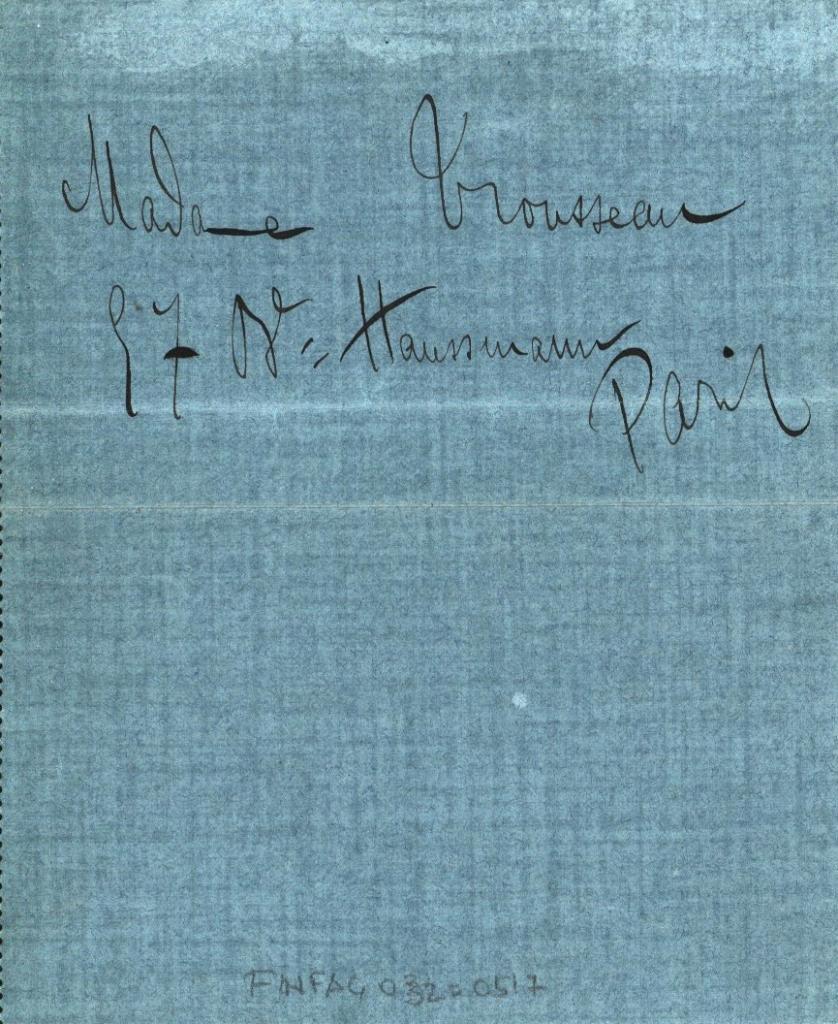 Madame Trousseau
57 Bd = Haussmann
Paris
FINFAG 032=0517